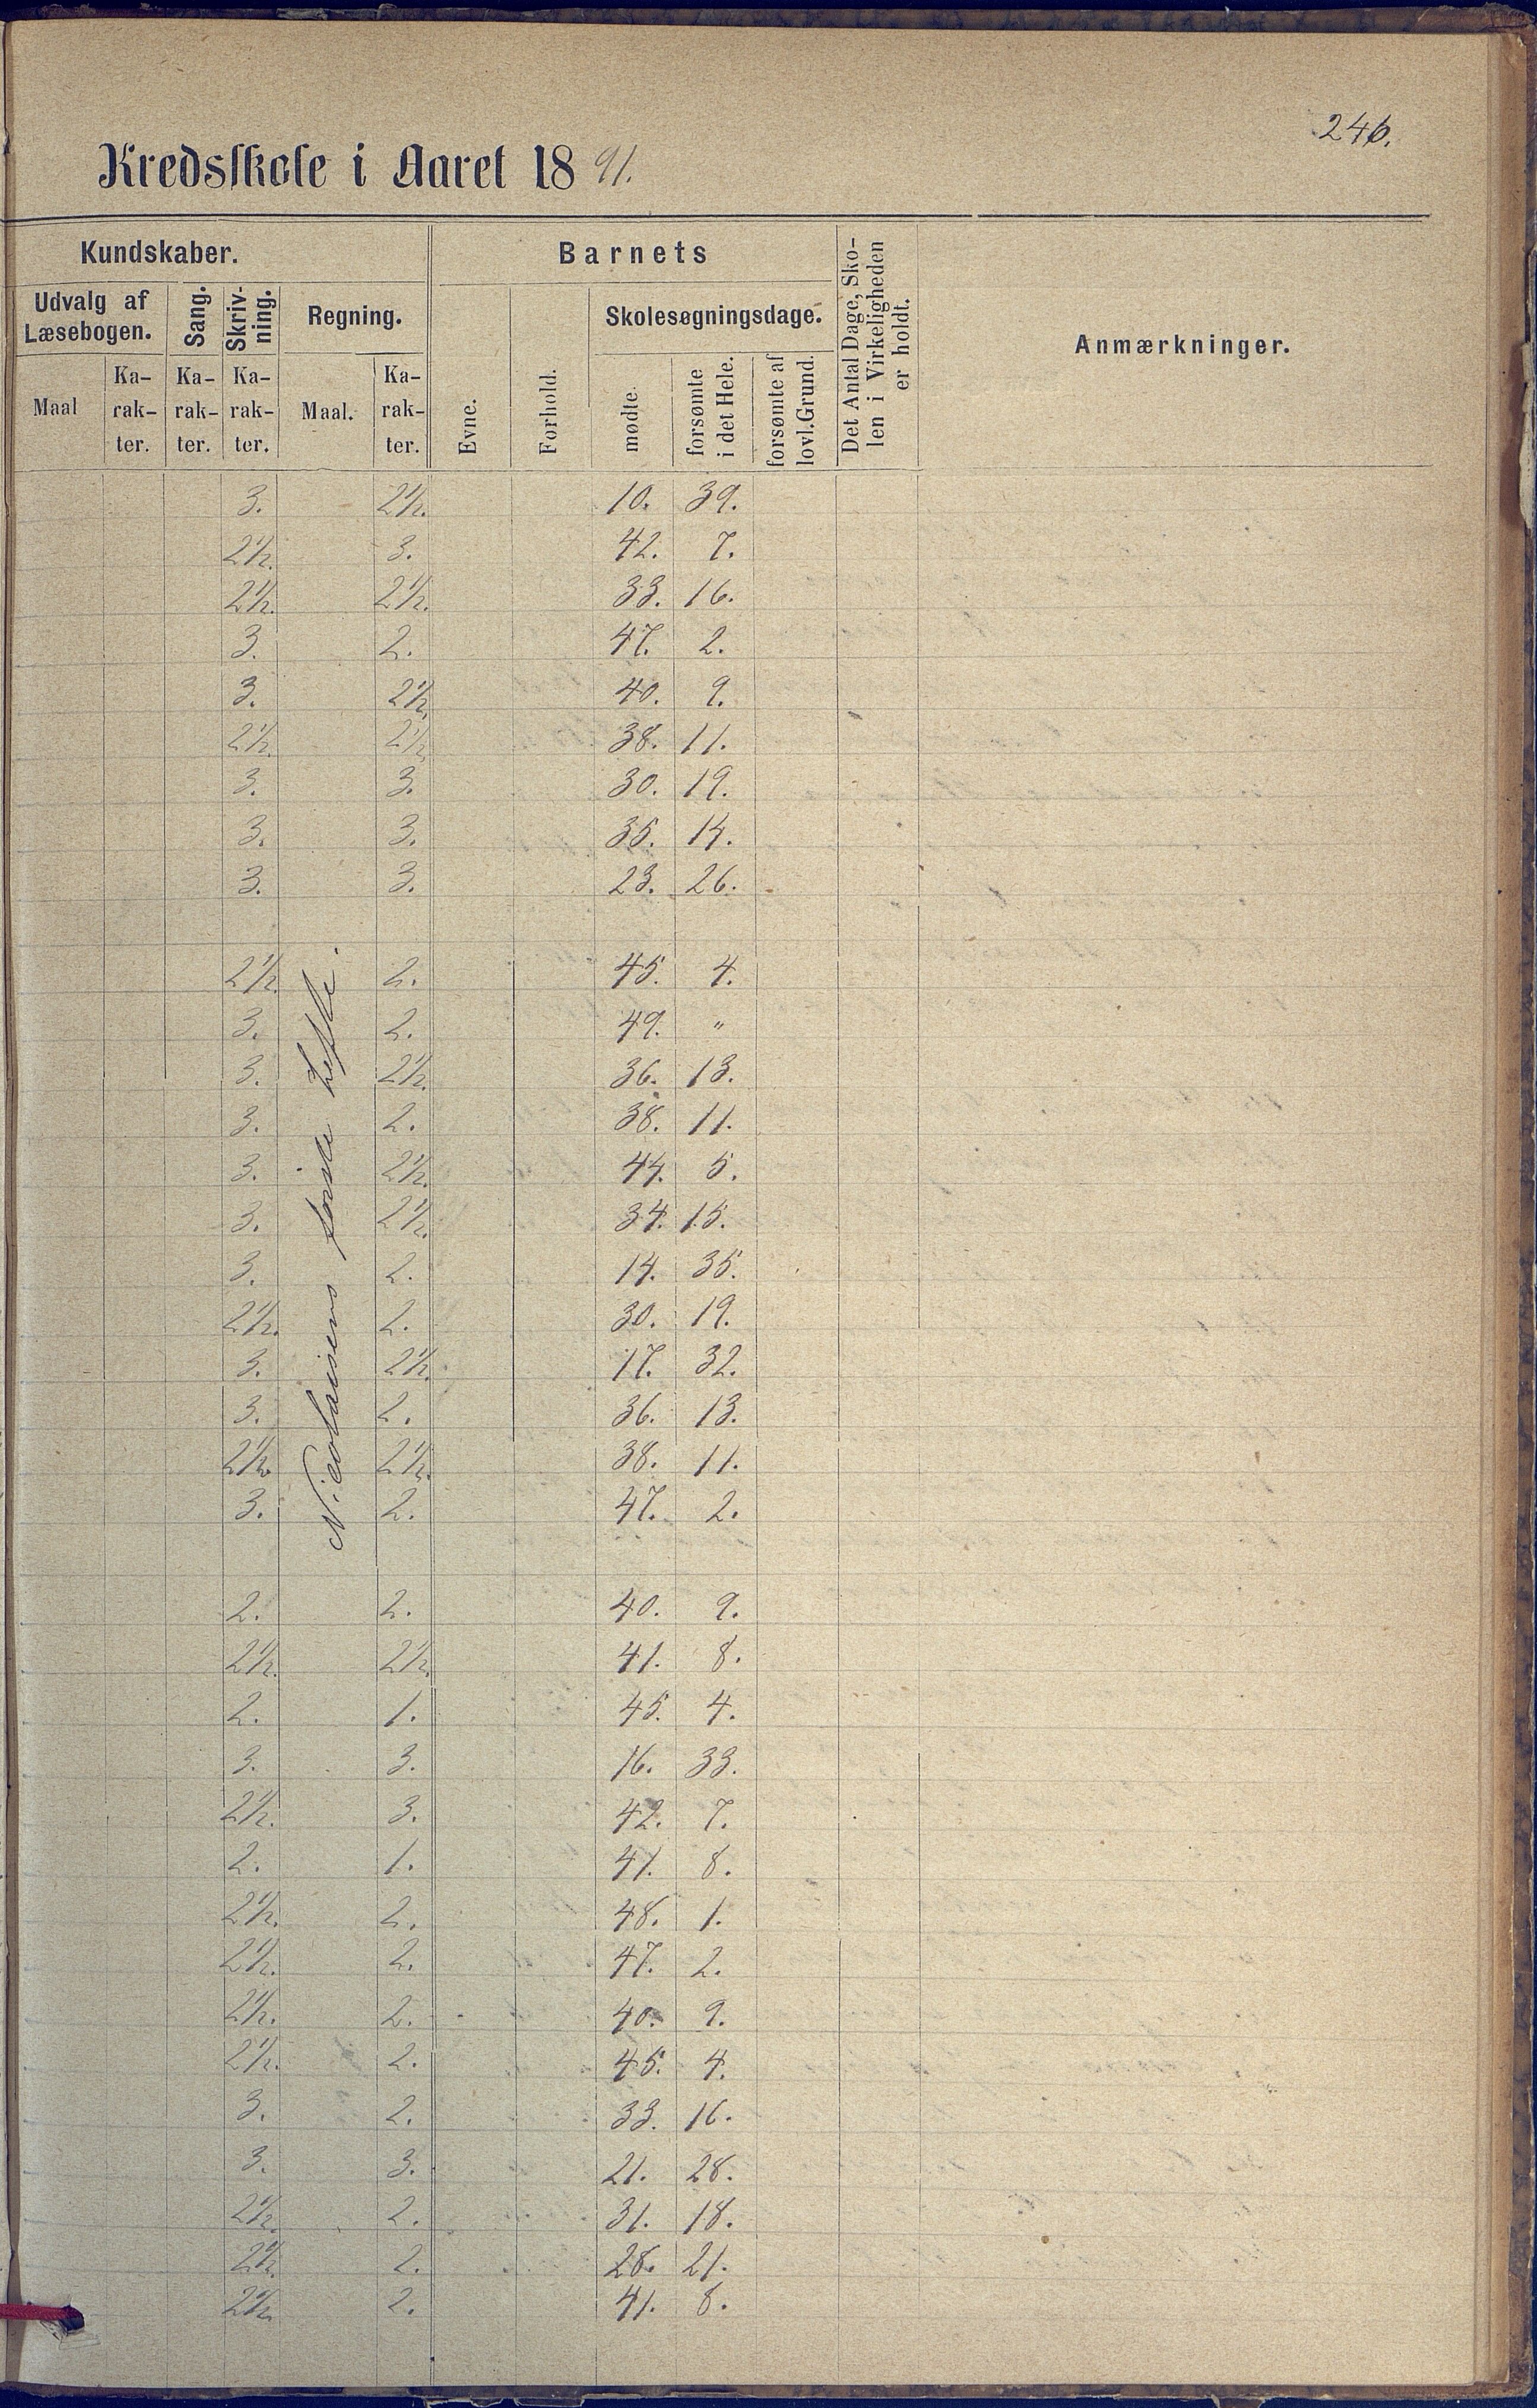 246.
Kredsskole i Aaret 1891.
Kundskaber.
Barnets
Det Antal Dage, Sko-
len i Virkeligheden
er holdt.
Anmærkninger.
Udvalg af
Læsebogen.
Sang.
Skriv-
ning.
Regning.
Evne.
Forhold.
Skolesøgningsdage.
Maal
Ka-
rak-
ter.
Ka-
rak-
ter.
Ka-
rak-
ter.
Maal.
Ka-
rak-
ter.
mødte.
forsømte
i det Hele.
forsømte af
lovl. Grund.
3. 2½. 10. 39.
2½. 3. 42. 7.
2½. 2½. 33. 16.
3. 2. 47. 2.
3. 2½. 40. 9.
2½. 2½. 38. 11.
3. 3. 30. 19.
3. 3. 35. 14.
3. 3. 23. 26.
Nicolaisens første hefte.
2½. 2. 45. 4.
3. 2. 49. "
3. 2½. 36. 13.
3. 2. 38. 11.
3. 2½. 44. 5.
3. 2½. 34. 15.
3. 2. 14. 35.
2½. 2. 30. 19.
3. 2½. 17. 32.
3. 2. 36. 13.
2½. 2½. 38. 11.
3. 2. 47. 2.
2. 2. 40. 9.
2½. 2½. 41. 8.
2. 1. 45. 4.
3. 3. 16. 33.
2½. 3. 42. 7.
2. 1. 41. 8.
2½. 2. 48. 1.
2½. 2. 47. 2.
2½. 2. 40. 9.
2½. 2. 45. 4.
3. 2. 33. 16.
3. 3. 21. 28.
2½. 2. 31. 18.
2½. 2. 28. 21.
2½. 2. 41. 8.